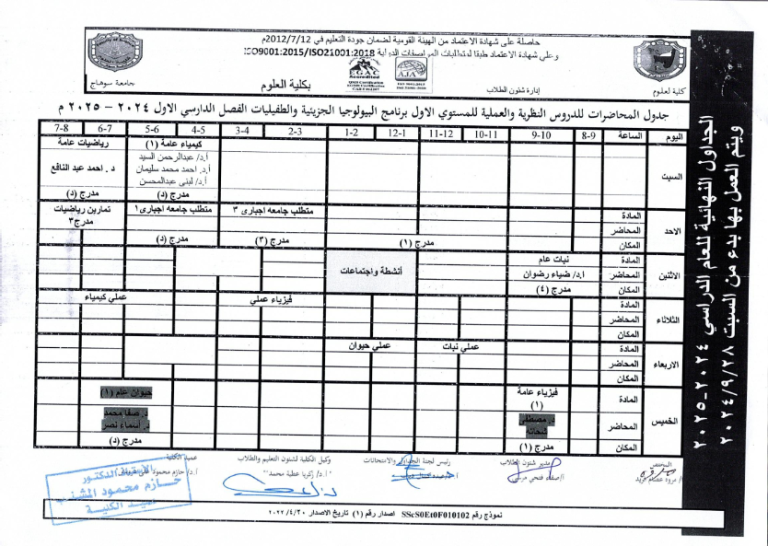 حاصلة على شهادة الاعتماد من الهيئة القومية لضمان جودة التعليم في 2012/7/12م
وعلى شهادة الاعتماد طبقا لمتطلبات المواصفات الدولية ISO9001:2015/ISO21001:2018
EGAC
Accredited
AJA
جامعة سوهاج
بكلية العلوم
إدارة شئون الطلاب
كلية لعلوم
جدول المحاضرات للدروس النظرية والعملية للمستوي الاول برنامج البيولوجيا الجزيئية والطفيليات الفصل الدارسي الاول ٢٠٢٤ - ٢٠٢٥ م
اليوم الساعة 8-9 9-10 10-11 11-12 12-1 1-2 2-3 3-4 4-5 5-6 6-7 7-8
السبت
كيمياء عامة (١)
أ.د/ عبدالرحمن السيد
أ.د. احمد محمد سليمان
أ.د/ لبنى عبدالمحسن
مدرج (د)
رياضيات عامة
د. احمد عبد النافع
مدرج (د)
الاحد
المادة
المحاضر
المكان
مدرج (١)
متطلب جامعه اجبارى ٣
مدرج (٣)
متطلب جامعه اجبارى١
مدرج (د)
تمارين رياضيات
مدرج٣
الاثنين
المادة
المحاضر
المكان
نبات عام
أ.د/ ضياء رضوان
مدرج (٤)
أنشطة واجتماعات
الثلاثاء
المادة
المحاضر
المكان
فيزياء عملي
عملي كيمياء
الاربعاء
المادة
المحاضر
المكان
عملي نبات
عملي حيوان
الخميس
المادة
المحاضر
المكان
فيزياء عامة
(١)
د. مصطفى
مدرج (١)
حيوان عام (١)
د. صفا محمد
د. أسماء نصر
مدرج (د)
الجداول النهائية للعام الدراسي ٢٠٢٤-٢٠٢٥
ويتم العمل بها بدء من السبت ٢٠٢٤/٩/٢٨
المختص
مدير شئون الطلاب
رئيس لجنة الجداول والامتحانات
وكيل الكلية لشئون التعليم والطلاب
أ.د/ زكريا عطية محمد
عميد الكلية
الأستاذ الدكتور
حازم محمود المشنب
عميد الكلية
نموذج رقم SScS0Et0F010102 اصدار رقم (١) تاريخ الاصدار ٢٠٢٢/٤/٢٠